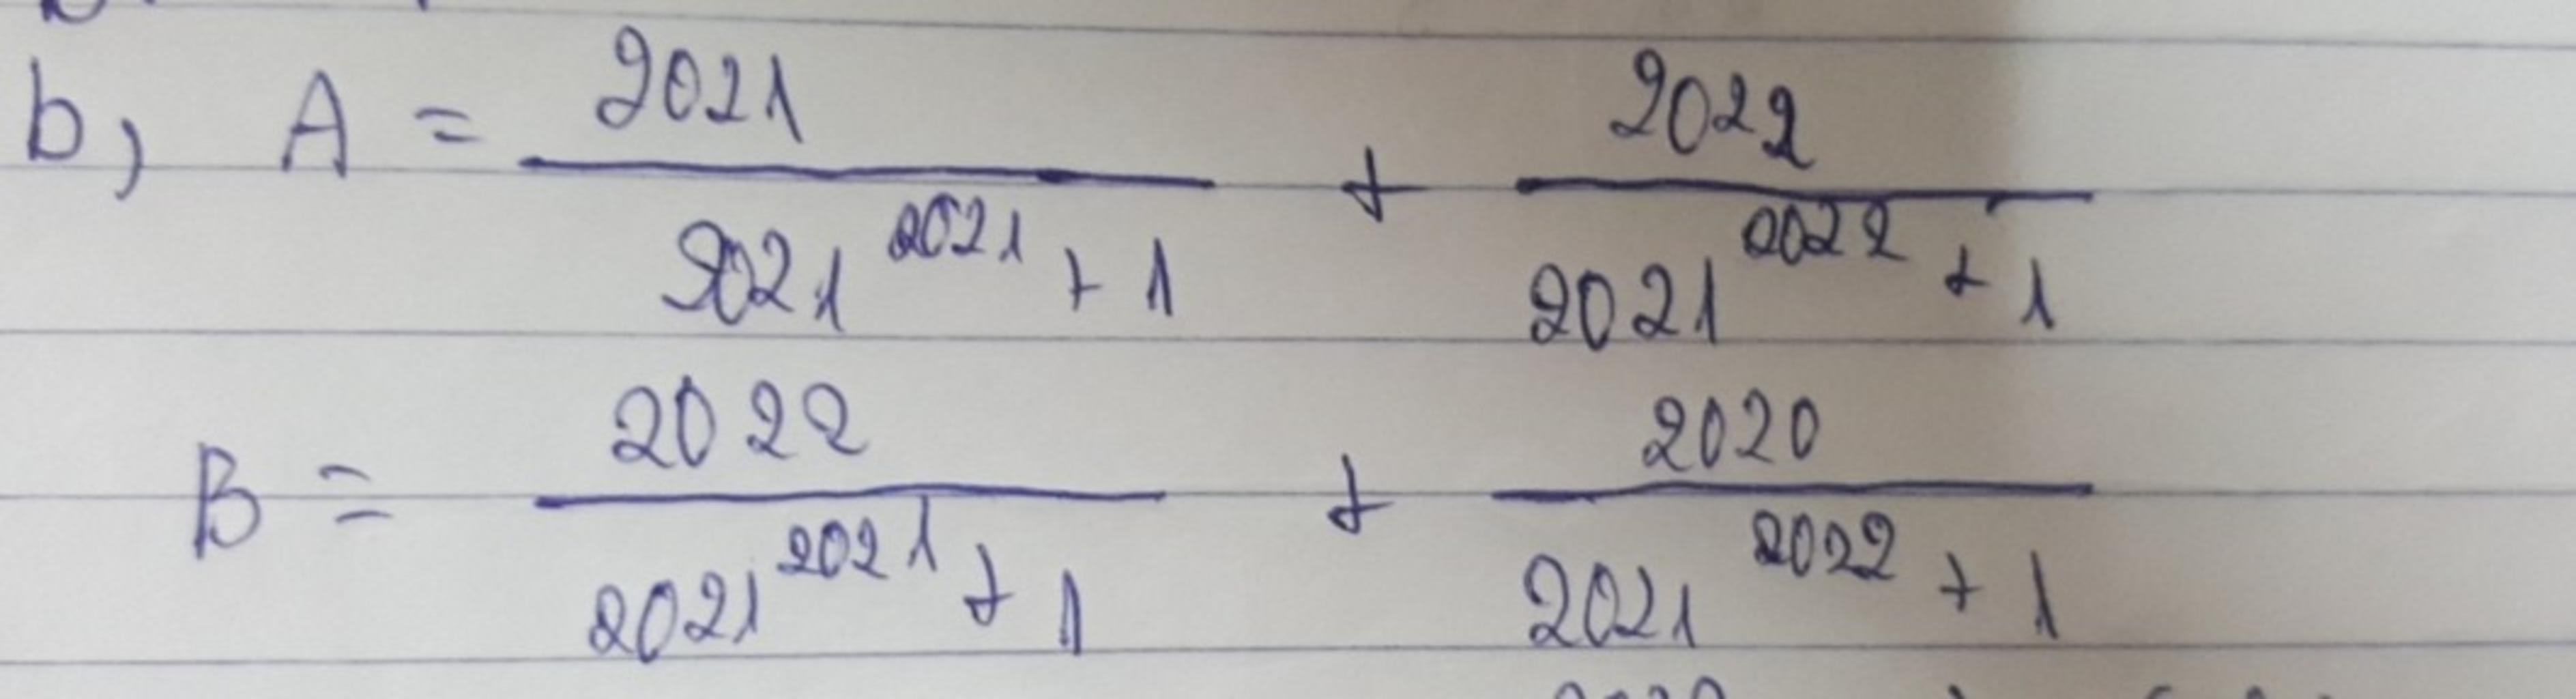 b, A = \frac{2021}{2021^{2021} + 1} + \frac{2022}{2021^{2022} + 1}
B = \frac{2022}{2021^{2021} + 1} + \frac{2020}{2021^{2022} + 1}